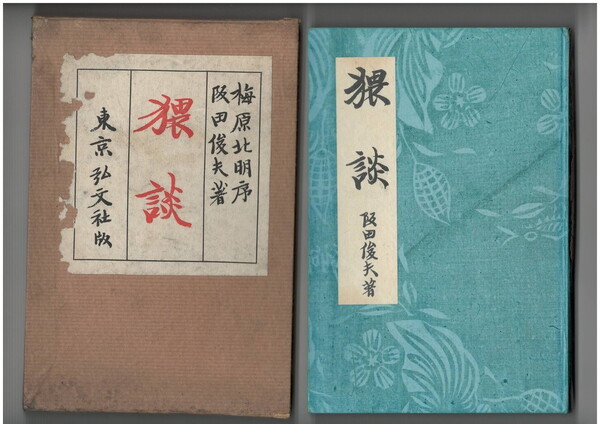 梅原北明序
阪田俊夫著
猥談
東京 弘文社版
猥談
阪田俊夫著